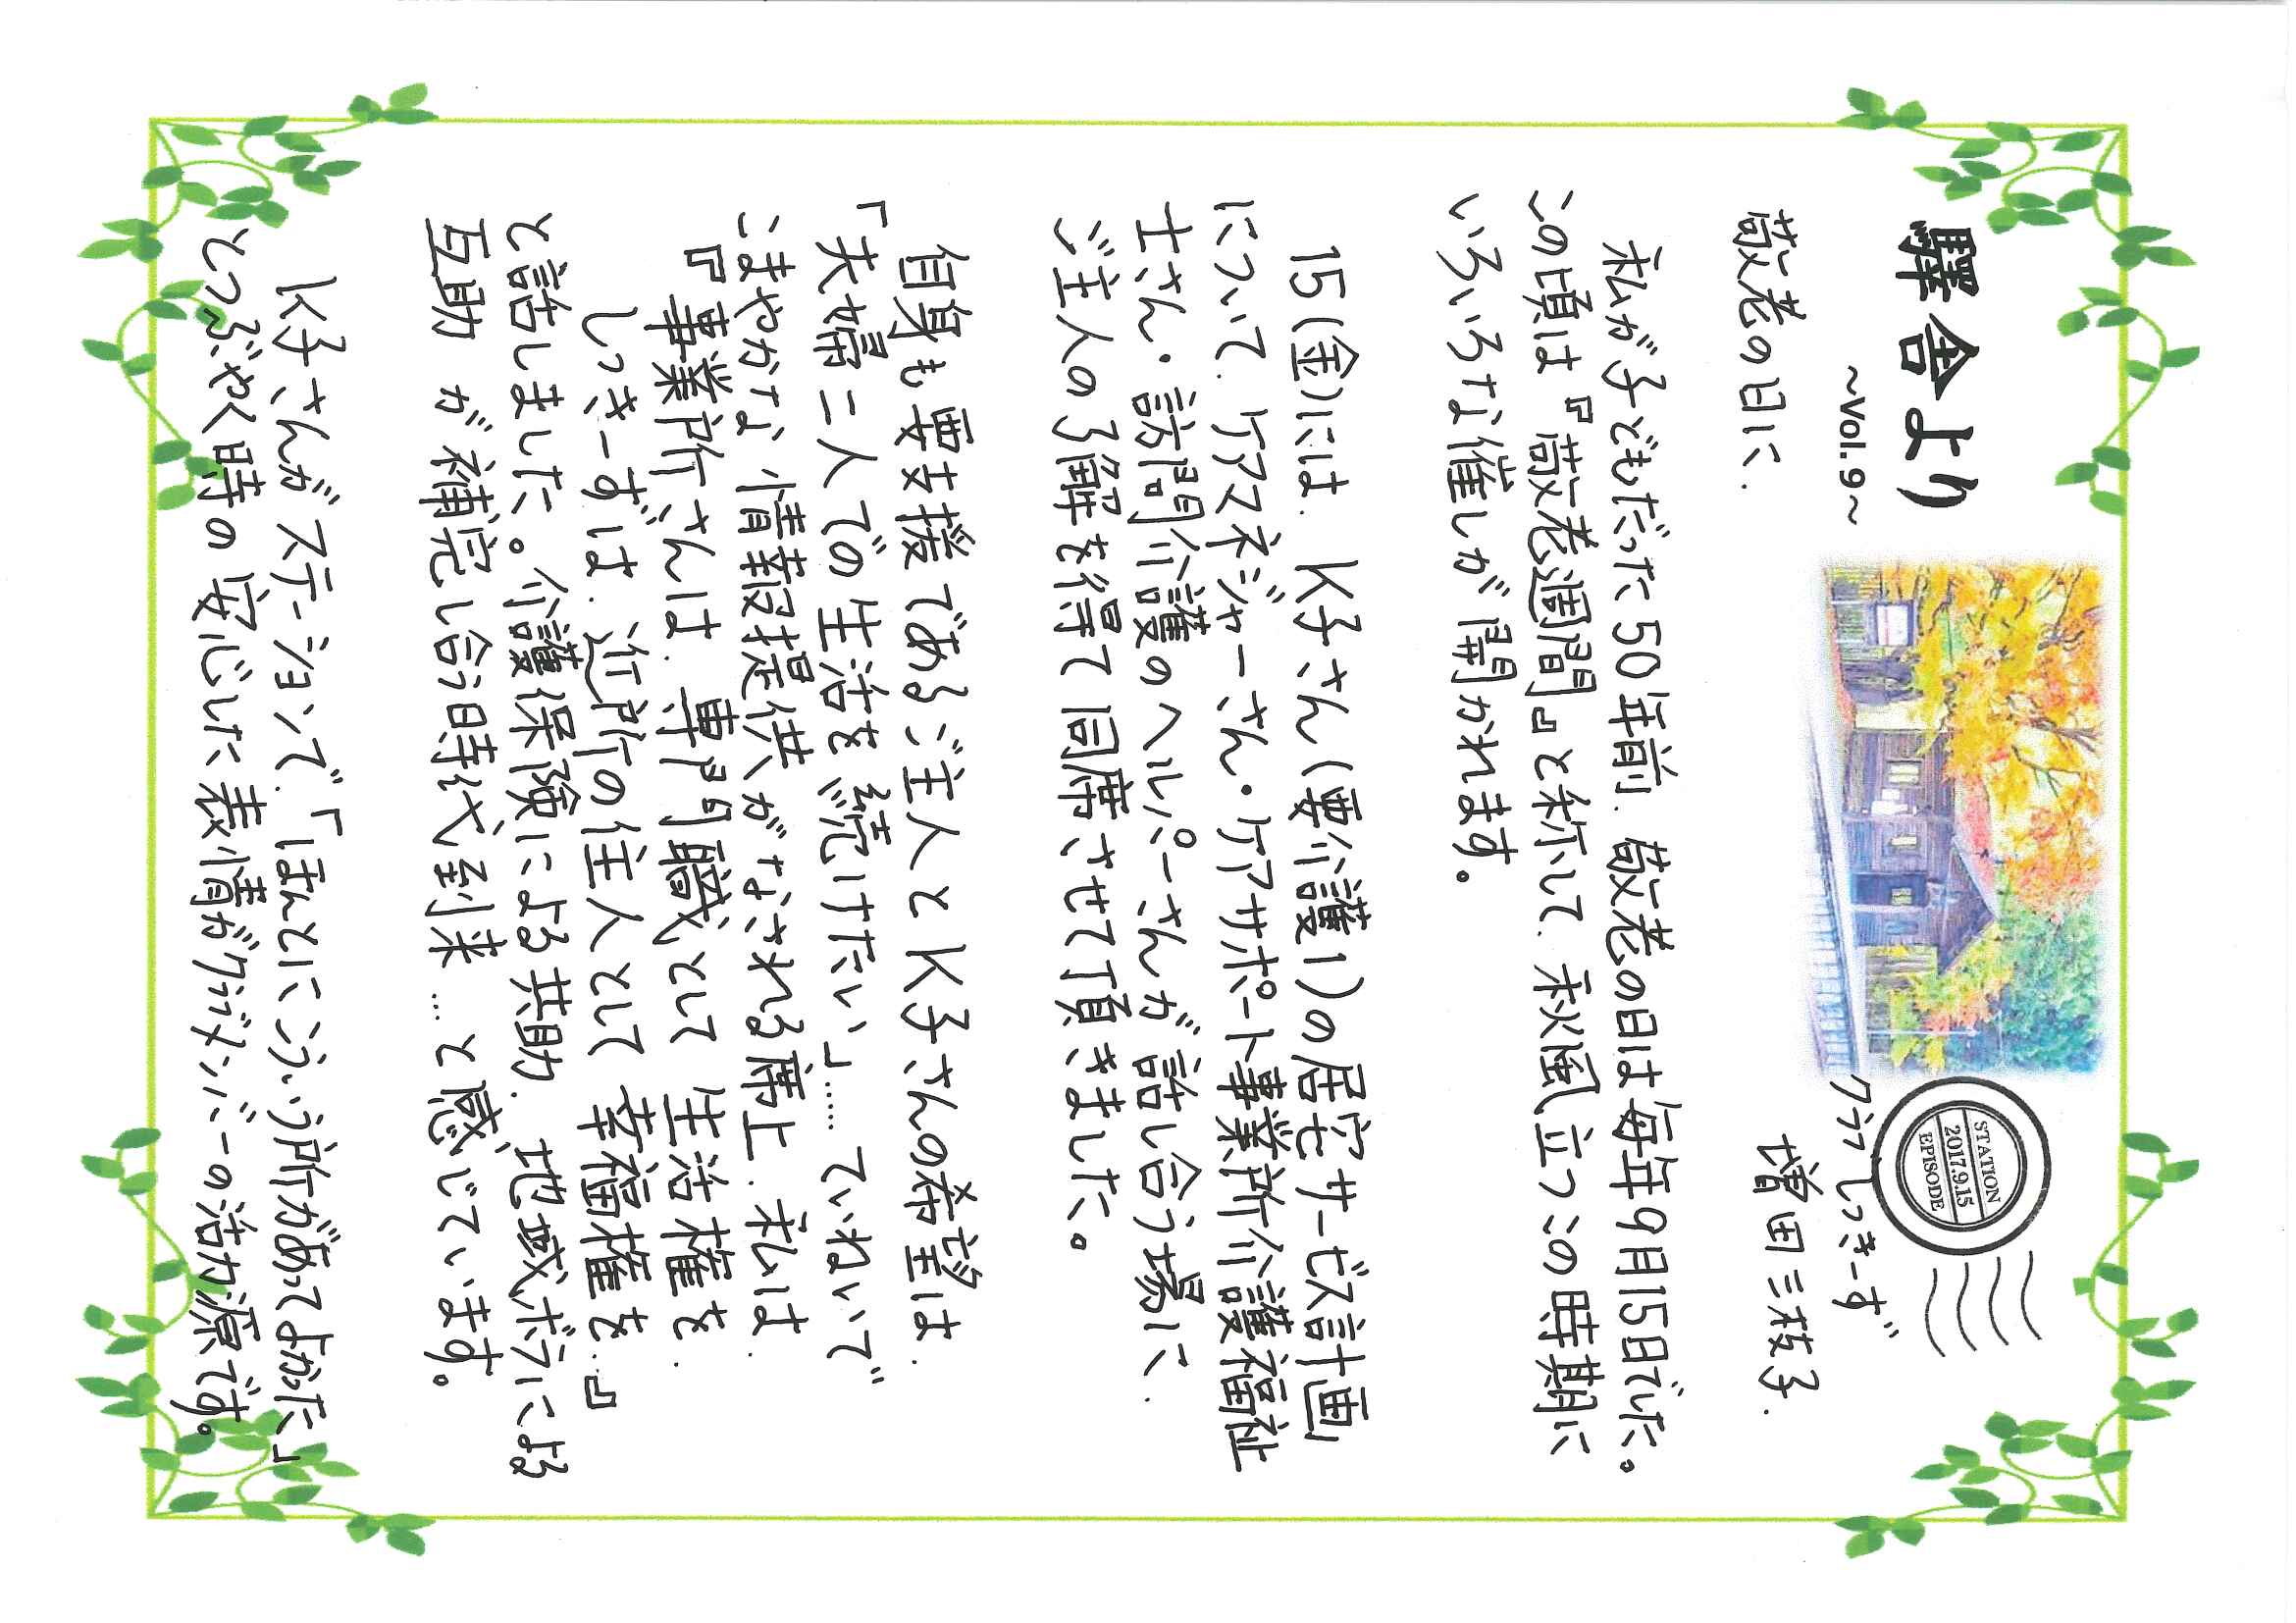 驛舎より
～Vol.9～
STATION
2017.9.15
EPISODE
クラブしっきーず
増田三枝子.
敬老の日に.
私が子どもだった50年前. 敬老の日は毎年9月15日でした。
この頃は『敬老週間』と称して. 秋風立つこの時期に
いろいろな催しが開かれます。
15(金)には. K子さん(要介護1)の居宅サービス計画
について. ケアマネジャーさん・ケアサポート事業所介護福祉
士さん・訪問介護のヘルパーさんが話し合う場に.
ご主人の了解を得て同席させて頂きました。
自身も要支援であるご主人とK子さんの希望は.
「夫婦二人での生活を続けたい」……ていねいで
こまやかな情報提供がなされる席上. 私は.
『事業所さんは. 専門職として生活権を.
しっきーずは. 近所の住人として幸福権を…』
と話しました。介護保険による共助. 地域ボラによる
互助 が補完し合う時代到来…と感じています。
K子さんがステーションで.「ほんとにこういう所があってよかった」
とつぶやく時の安心した表情がクラブメンバーの活力源です。